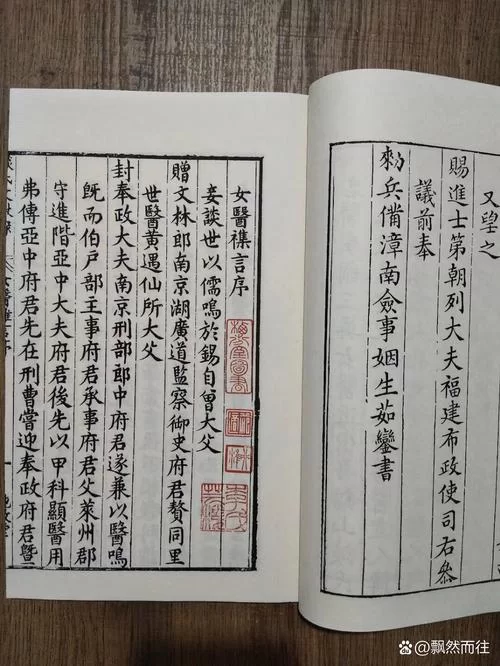 又學之
賜進士第朝列大夫福建布政使司右參
議前奉
勑兵備漳南僉事姻生茹鑾書
女醫襍言序
妾談世以儒鳴於錫自曾大父
贈文林郎南京湖廣道監察御史府君贅同里
世醫黃遇仙所大父
封奉政大夫南京刑部郎中府君遂兼以醫鳴
旣而伯戶部主事府君承事府君父萊州郡
守進階亞中大夫府君後先以甲科顯醫用
弗傳亞中府君先在刑曹嘗迎奉政府君曁
飘然而往